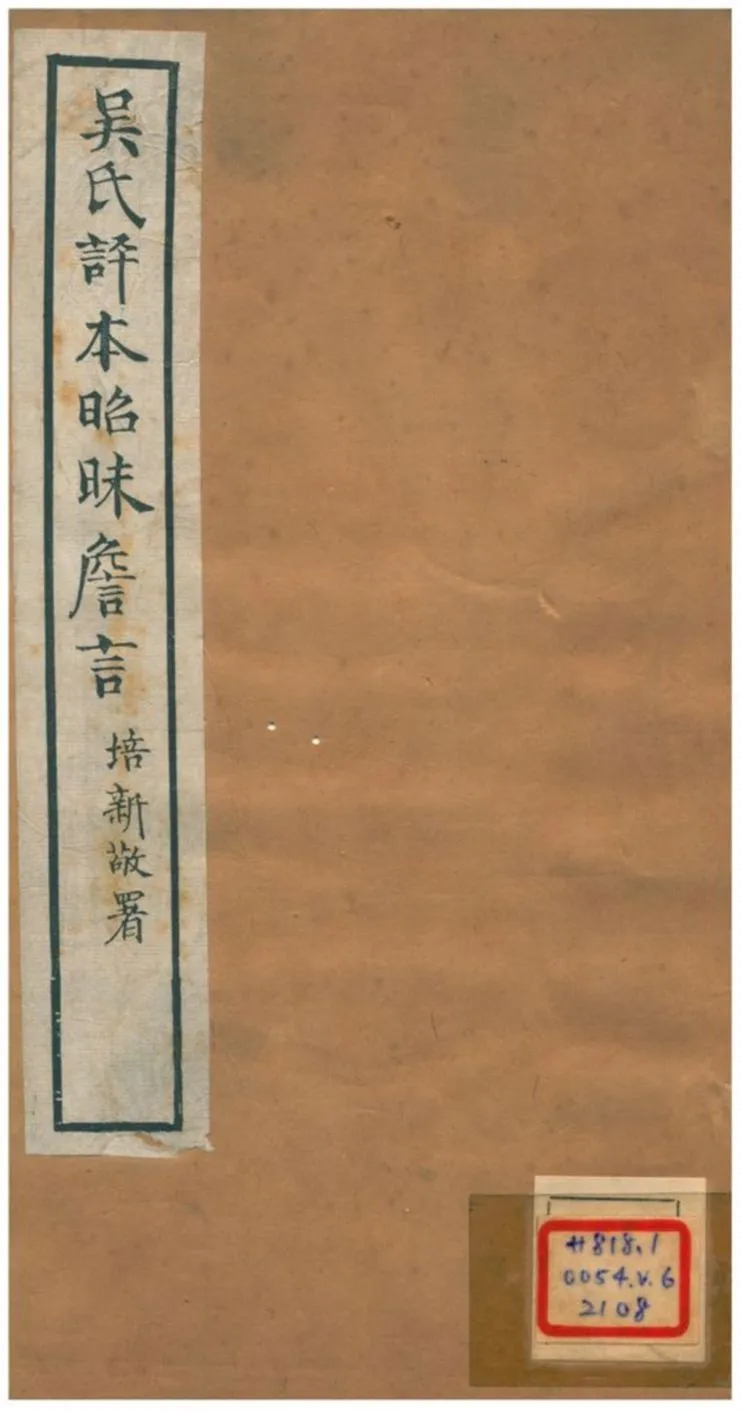 吴氏評本昭昧詹言
培新敬署
H818.1
0054.v.6
2108